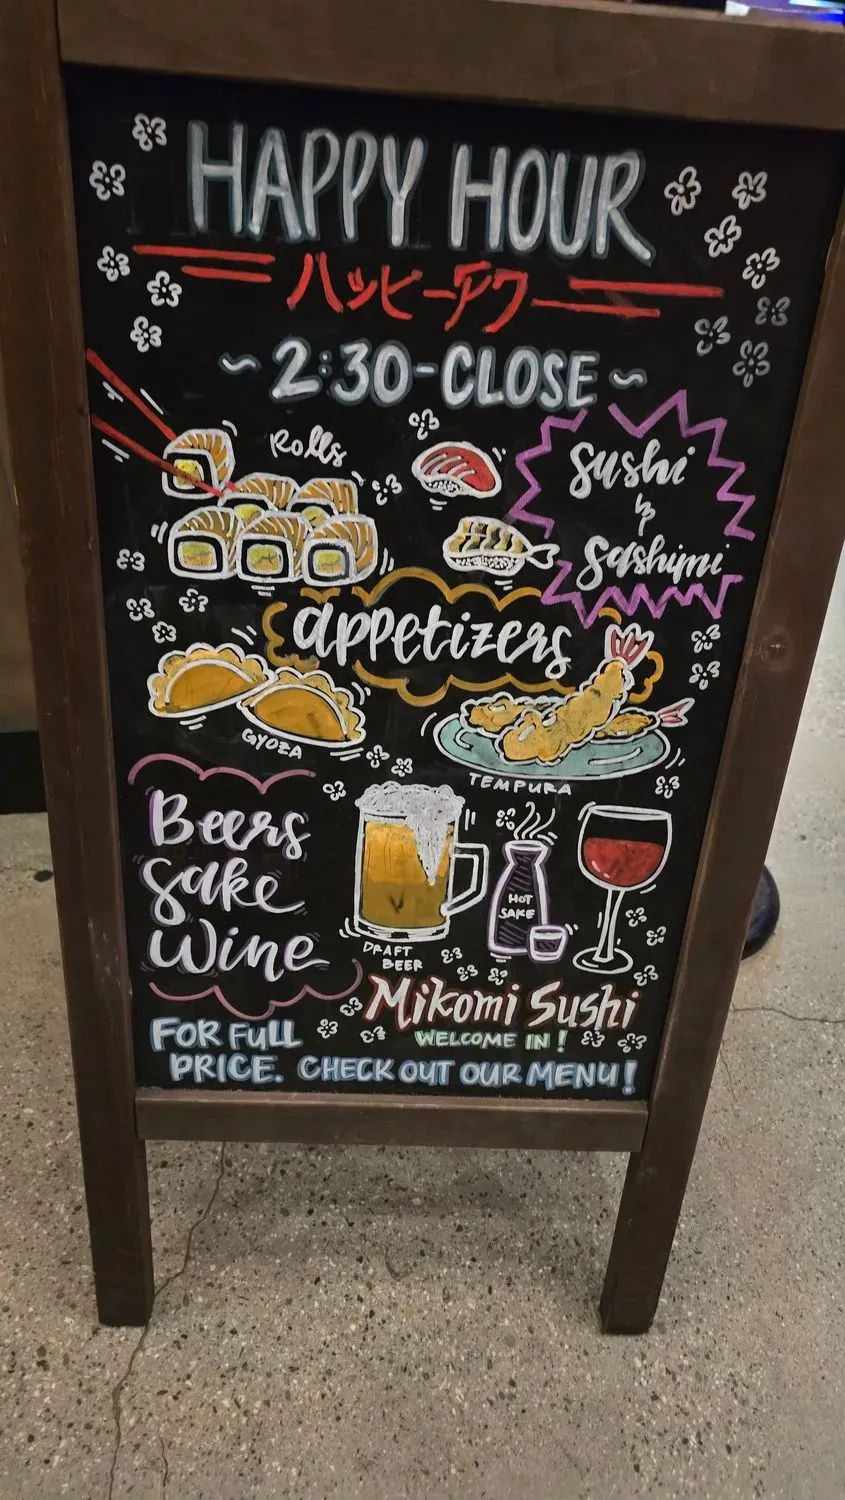 HAPPY HOUR
ハッピーアワ
~ 2:30-CLOSE ~
Rolls
sushi
&
sashimi
appetizers
GYOZA
TEMPURA
Beers
Sake
Wine
HOT
SAKE
DRAFT
BEER
Mikomi Sushi
WELCOME IN!
FOR FULL
PRICE. CHECK OUT OUR MENU!